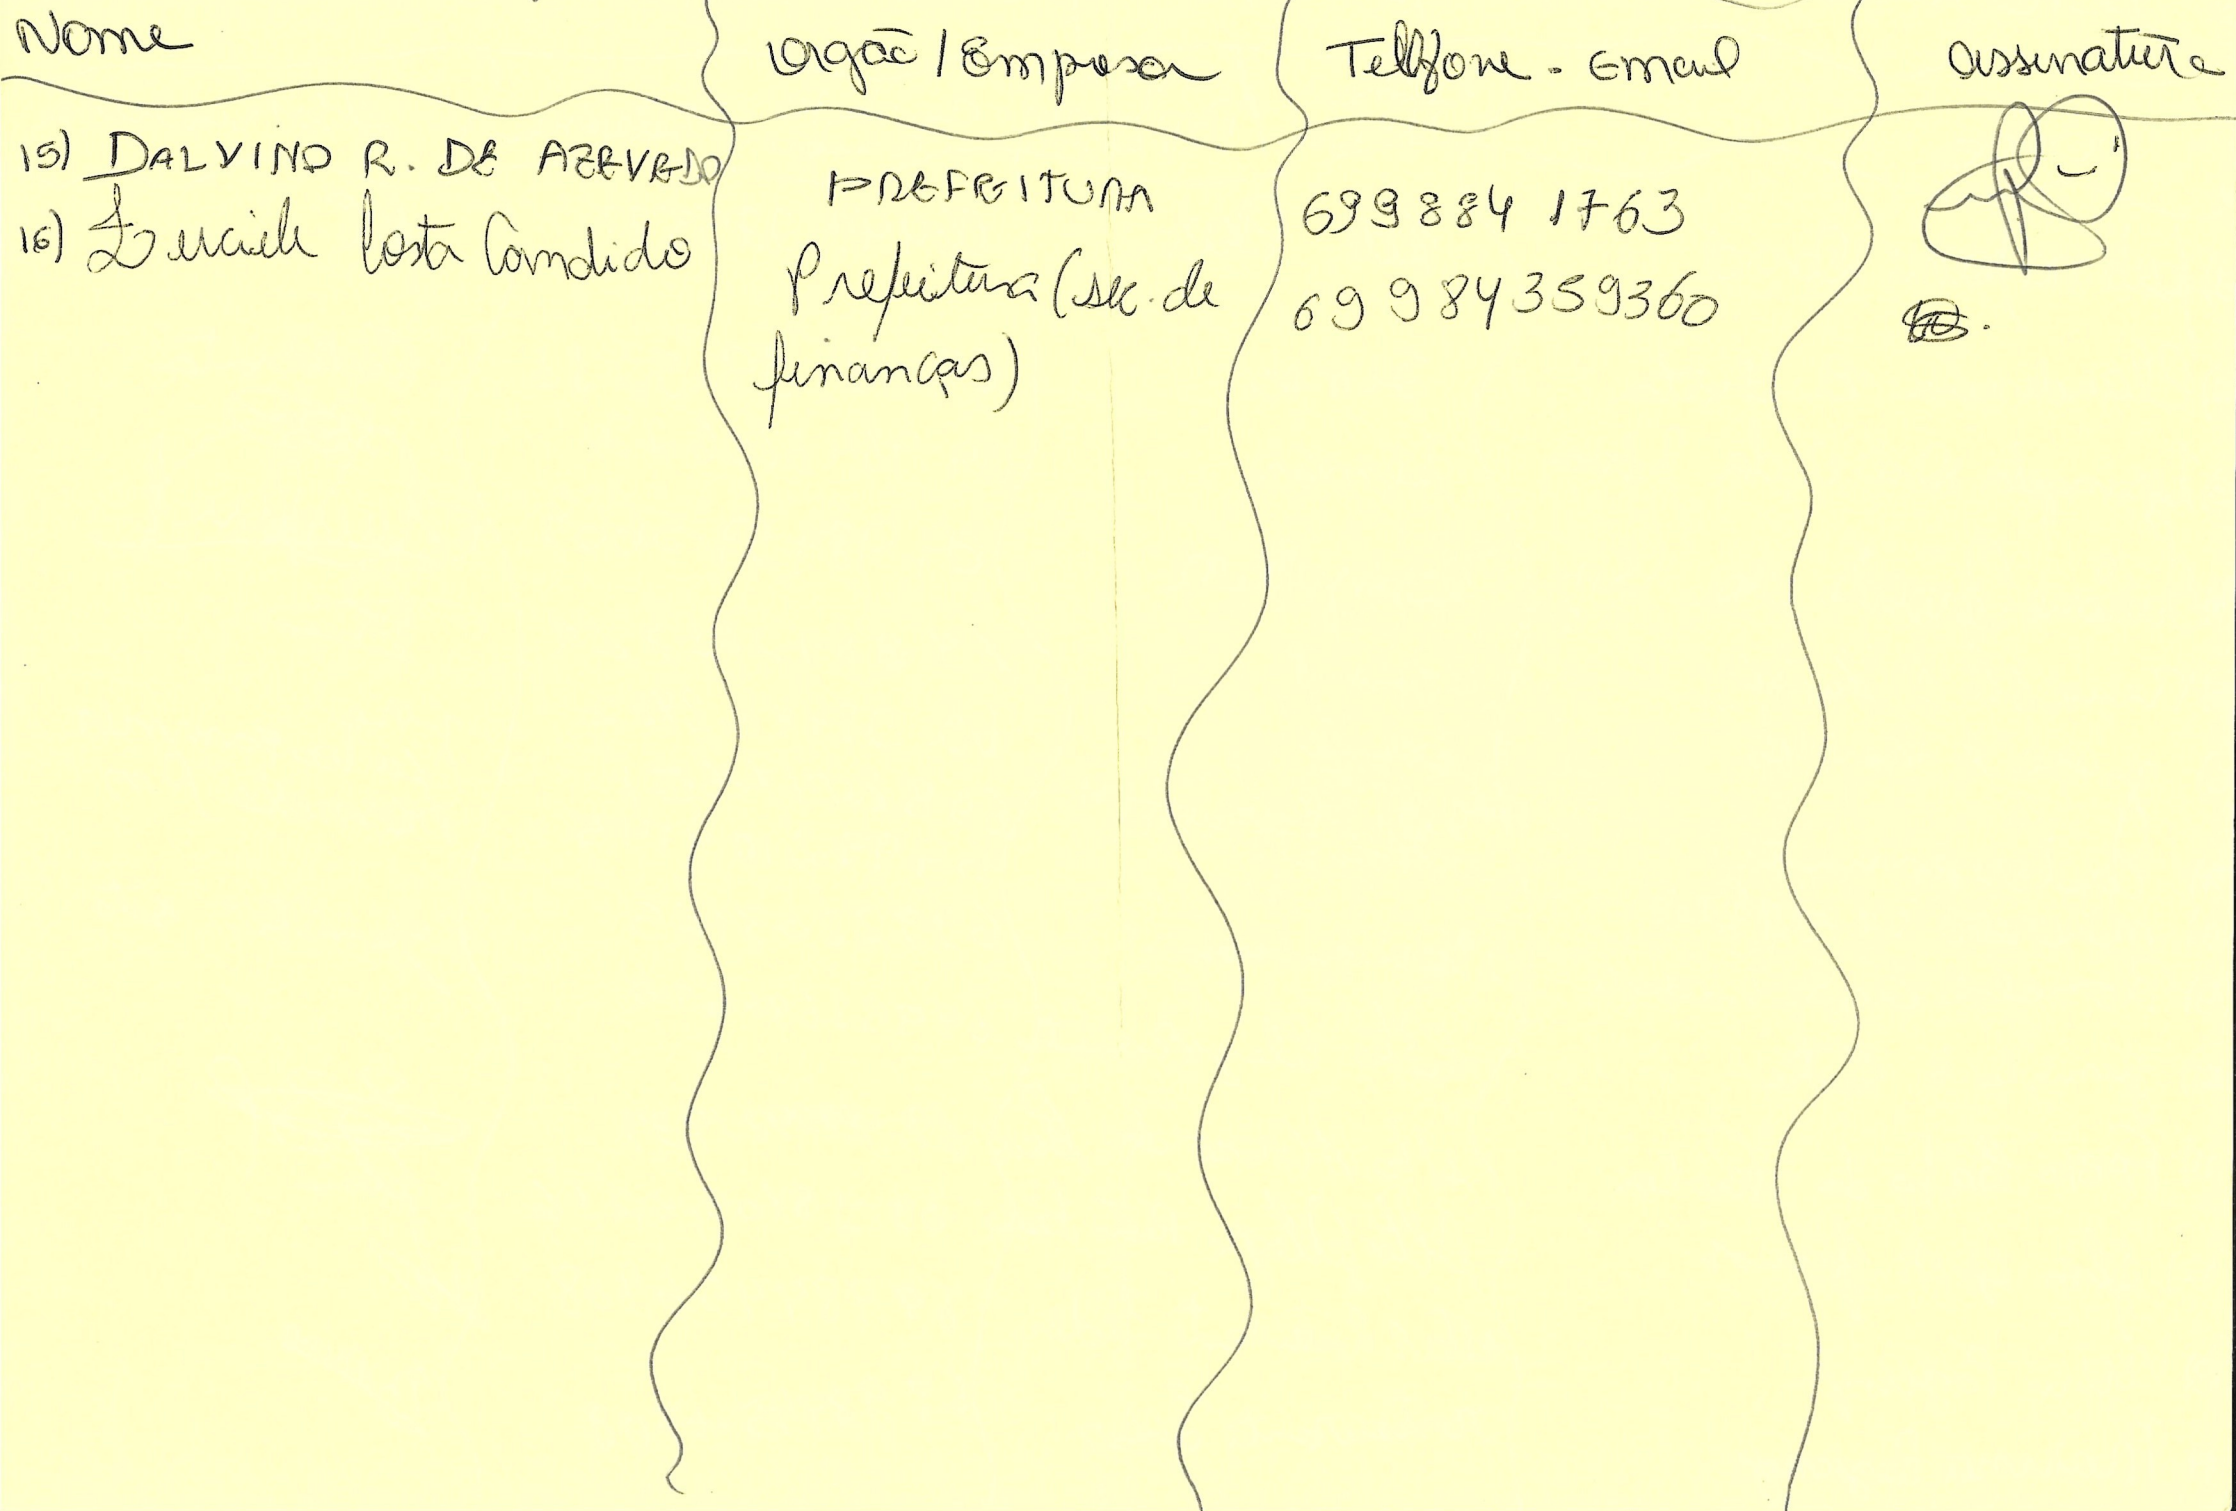 Nome
orgão / Empresa
Telefone - Email
assinatura
15) DALVINO R. DE AZEVEDO
PREFEITURA
699884 1763
16) Luciele Costa Candido
Prefeitura (sec. de
finanças)
69 984359360